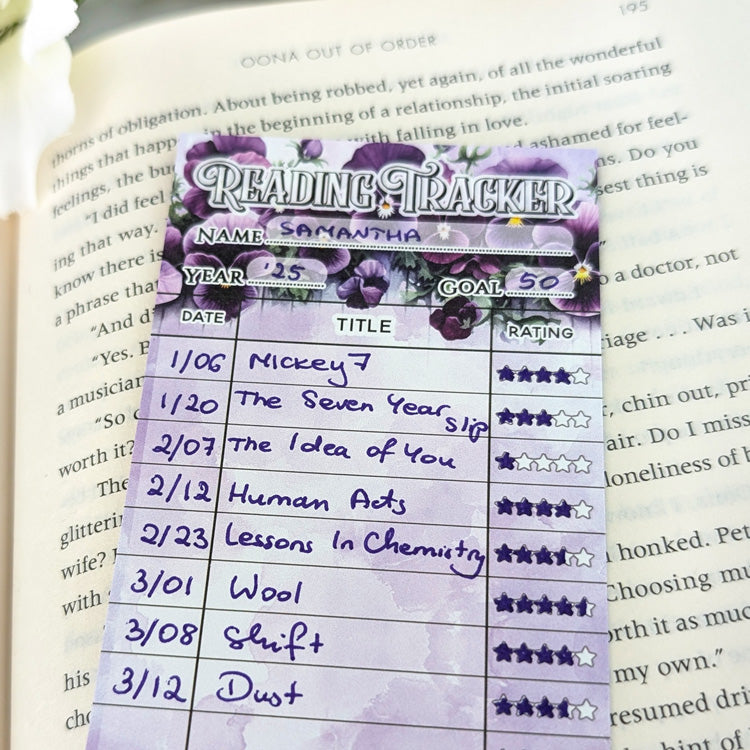 195
OONA OUT OF ORDER
thorns of obligation. About being robbed, yet again, of all the wonderful
things that happ in the beginning of a relationship, the initial soaring
feelings, the bu with falling in love.
"I did feel ashamed for feel-
ing that way. ns. Do you
know there is sest thing is
a phrase tha
"And di o a doctor, not
"Yes. B
a musician iage . . . Was i
"So c
worth it? , chin out, pri
The air. Do I miss
glitteri loneliness of b
wife?
with honked. Pet
Choosing mu
orth it as muc
his my own."
cho resumed dri
hint of
READING TRACKER
NAME SAMANTHA
YEAR '25 GOAL 50
DATE TITLE RATING
1/06 Mickey 7
1/20 The Seven Year Slip
2/07 The Idea of You
2/12 Human Acts
2/23 Lessons In Chemistry
3/01 Wool
3/08 Shift
3/12 Dust